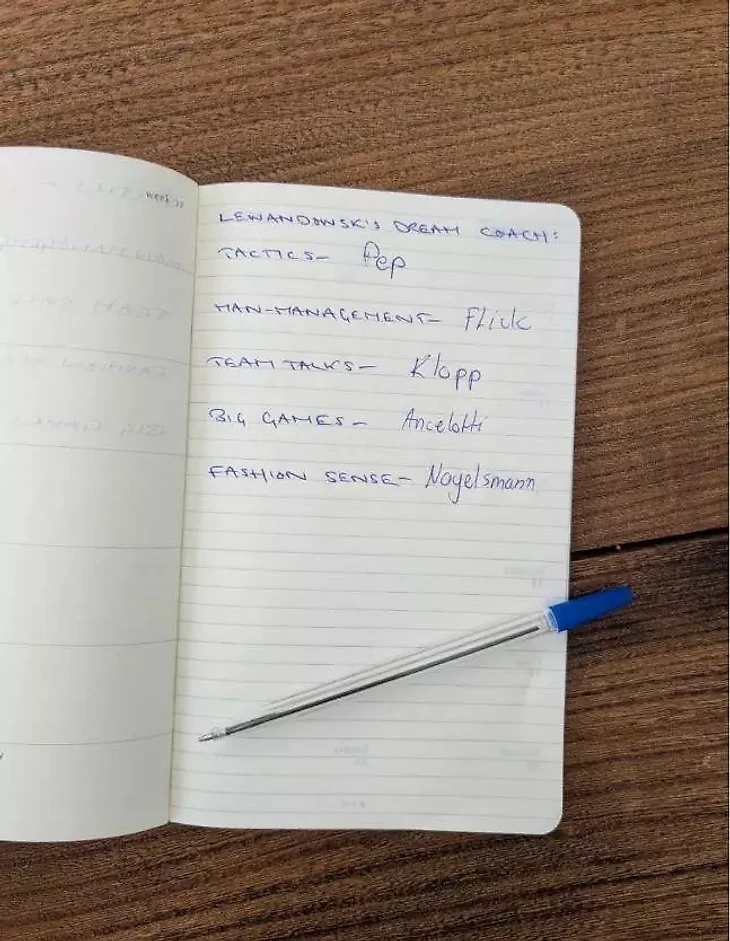 LEWANDOWSK'S DREAM COACH:
TACTICS- Pep
MAN-MANAGEMENT- Flick
TEAM TALKS- Klopp
BIG GAMES- Ancelotti
FASHION SENSE- Nagelsmann